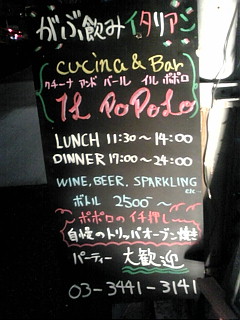 がぶ飲みイタリアン
cucina & Bar
クチーナ アンド バール イル ポポロ
IL PoPoLo
LUNCH 11:30~14:00
DINNER 17:00~24:00
WINE, BEER, SPARKLING
etc
ボトル 2500~
~ポポロのイチ押し~
自慢のトリッパオーブン焼き
パーティー 大歓迎
03-3441-3141